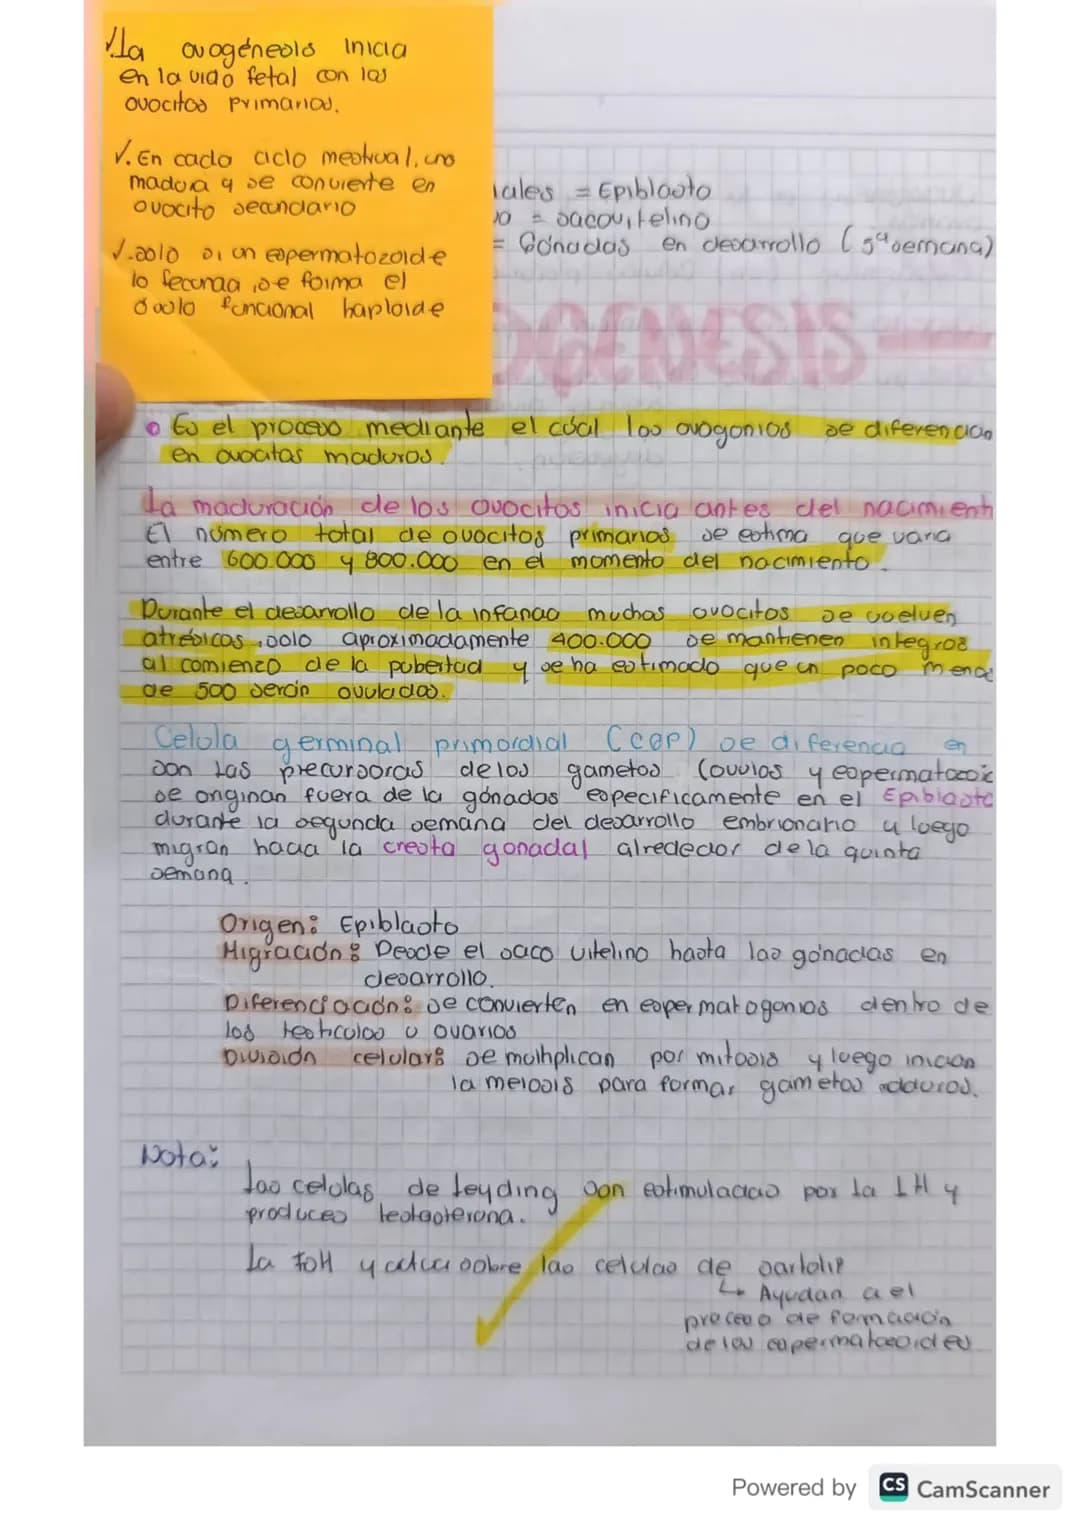 ✓.La ovogénesis inicia
en la vida fetal con los
ovocitos primarios.
✓.En cada ciclo mestrual, uno
madura y se convierte en
ovocito secundario
✓.solo si un espermatozoide
lo fecunda, se forma el
óvulo funcional haploide
iales = Epiblasto
= sacovitelino
= Gónadas en desarrollo (5ª semana)
OGENESIS
Es el proceso mediante el cúal los ovogonios se diferencian
en ovocitos maduros.
La maduración de los ovocitos inicia antes del nacimient
El número total de ovocitos primarios se estima que varia
entre 600.000 y 800.000 en el momento del nacimiento.
Durante el desarrollo de la infancia muchos ovocitos se vuelven
atrésicos, solo aproximadamente 400.000 se mantienen integros
al comienzo de la pubertad y se ha estimado que un poco menos
de 500 serán ovulados.
Celula germinal primordial (CGP) se diferencia en
son las precursoras de los gametos (ovulos y espermatozoi
se originan fuera de la gónadas especificamente en el Epiblasto
durante la segunda semana del desarrollo embrionario y luego
migran hacia la cresta gonadal alrededor de la quinta
semana.
Origen: Epiblasto
Migración: Desde el saco vitelino hasta las gónadas en
desarrollo.
Diferenciación: se convierten en espermatogonios dentro de
los testiculos u ovarios
División celular: se multiplican por mitosis y luego inician
la meiosis para formar gametos maduros.
Nota:
Las celulas de leyding son estimuladas por la LH y
produces testosterona.
La FSH y actua sobre las celulas de sartoli
↳ Ayudan a el
proceso de formación
de los espermatozoides
Powered by CS CamScanner